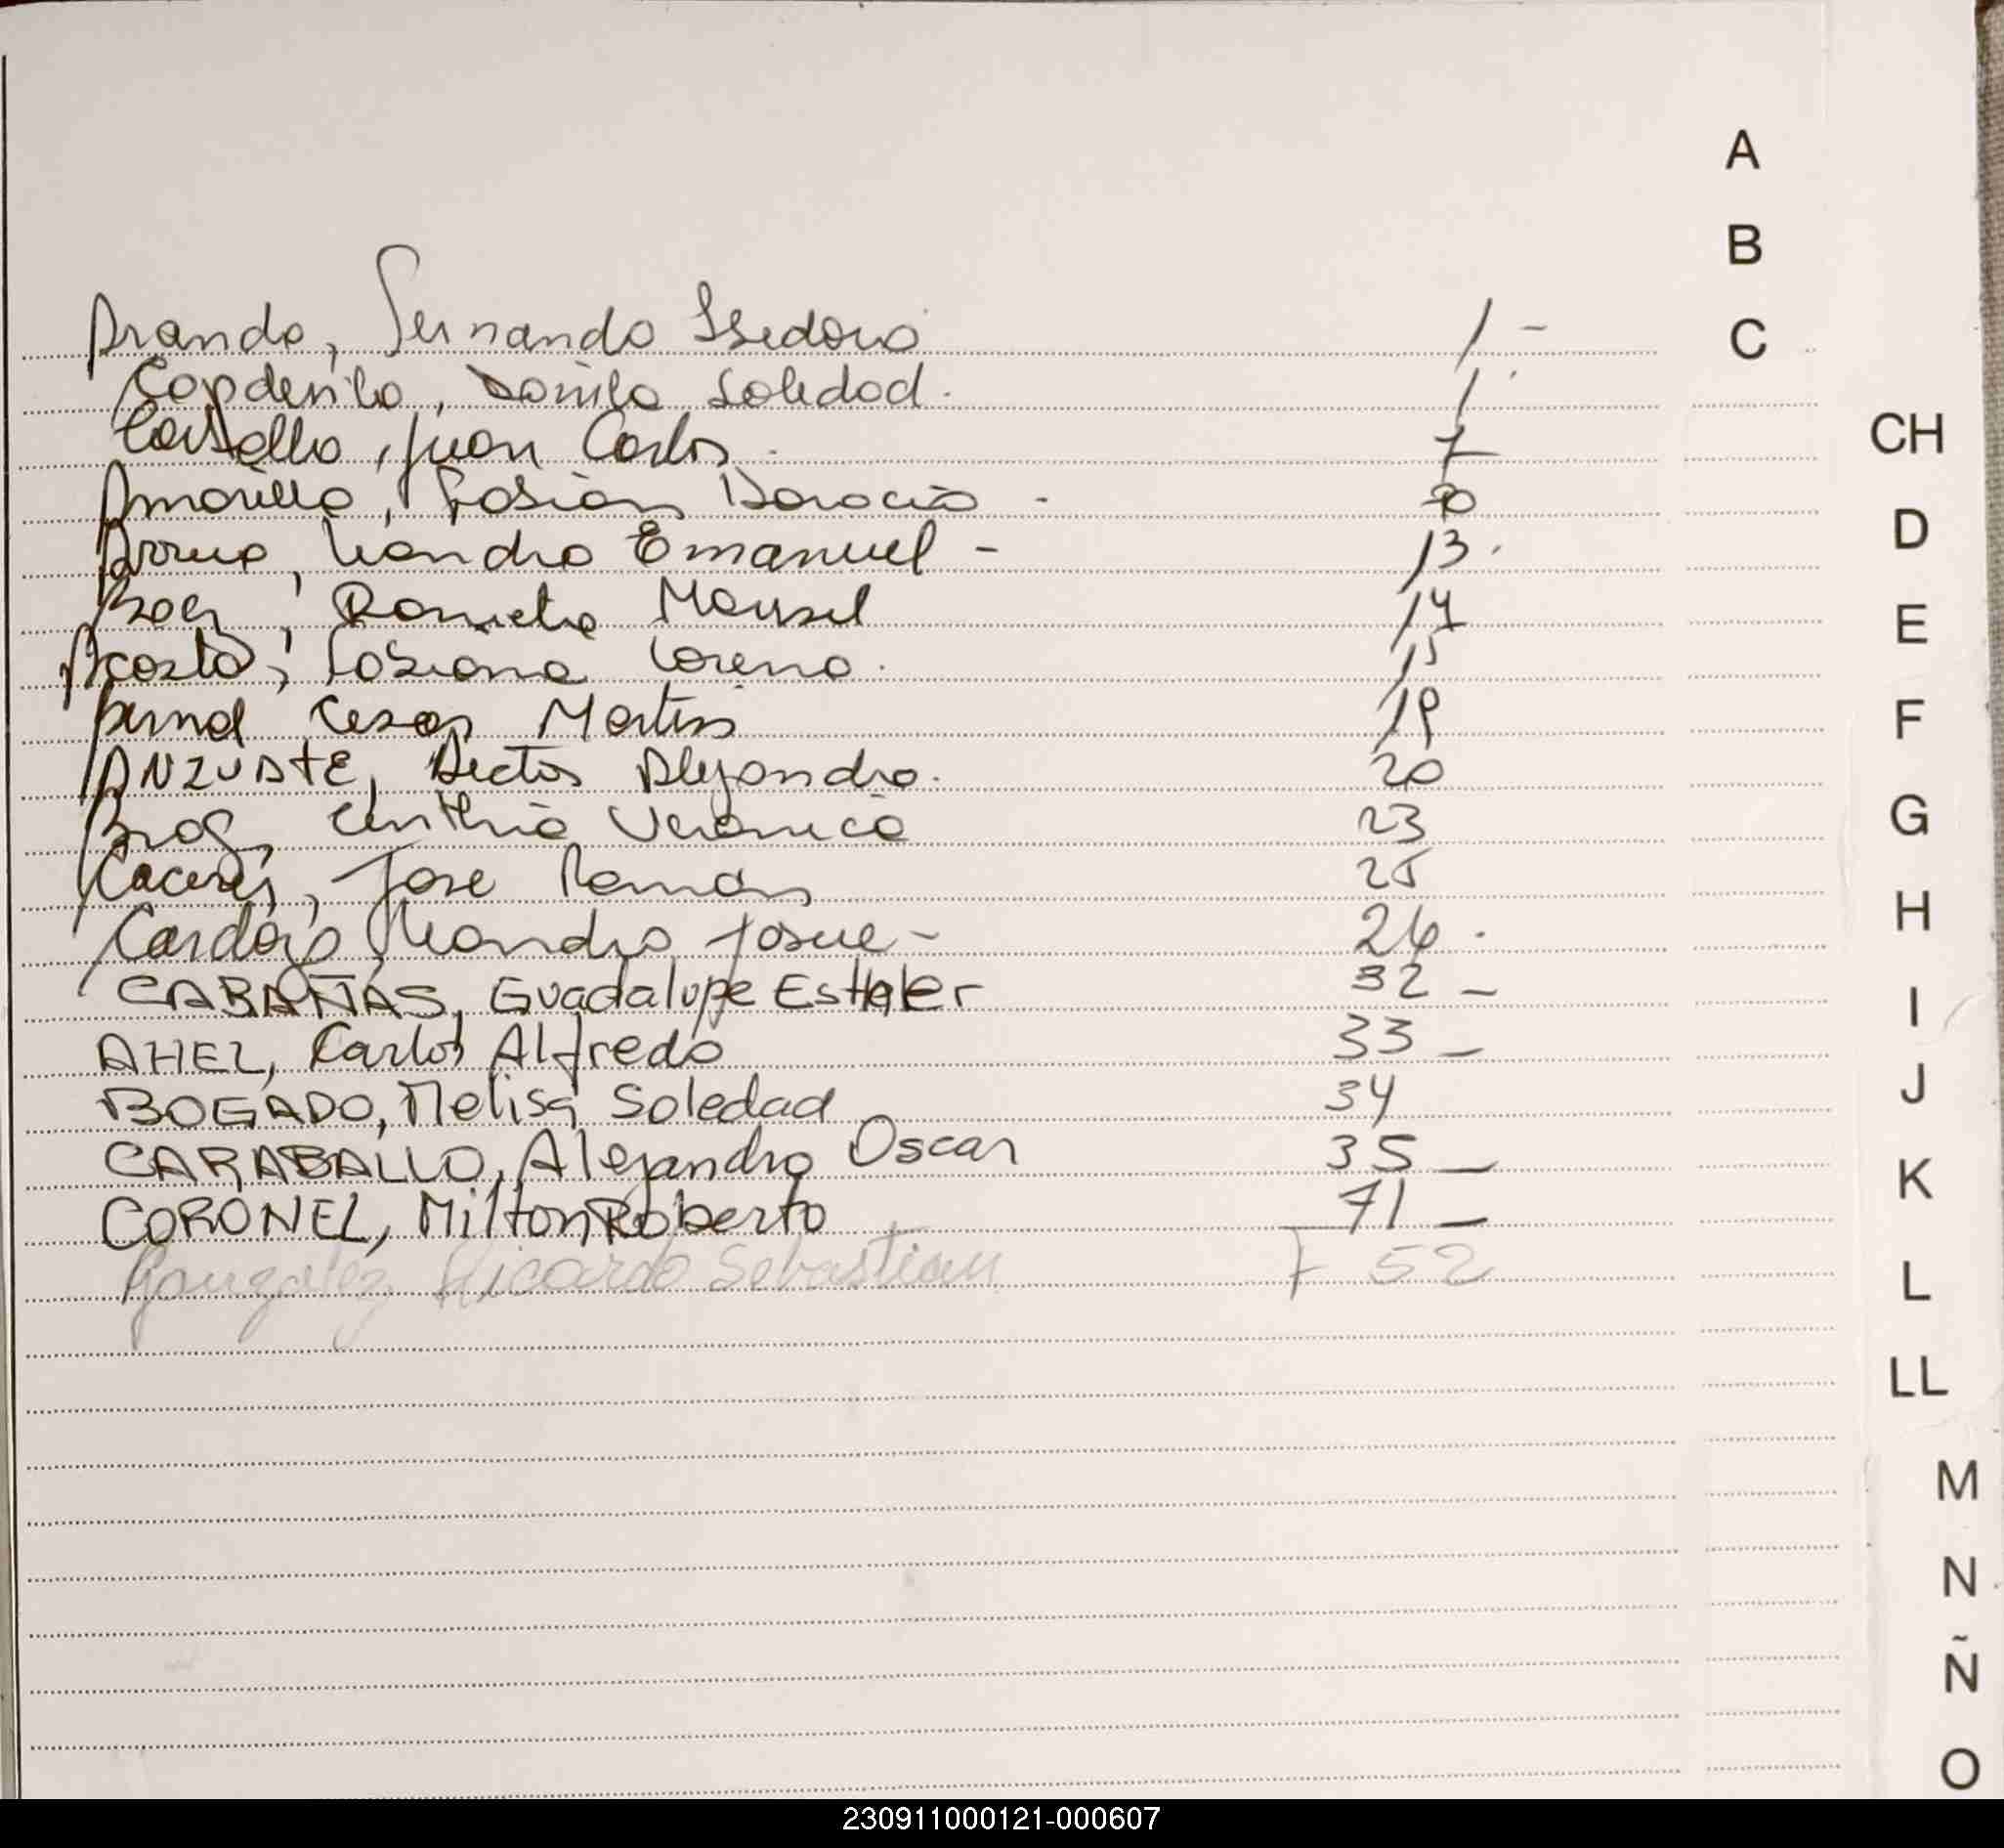 A
B
Aranda, Fernando Isidoro 1 - C
Capdevila, Daniela Soledad. 1
Castello, Juan Carlos. 7 CH
Amarilla, Horacio - D
Leandro Emanuel - 13.
Baez, Mansel 14 E
Acosta, Lorena. 15
Bernal Cesar Martin 19 F
ANZUATE, Hector Alejandro. 20
Cinthia Veronica 23 G
Caceres, Jose Ramon 25
Cardozo, Leandro Josue - 26. H
CABAÑAS, Guadalupe Esther 32 -
I
AHEL, Carlos Alfredo 33 -
BOGADO, Melisa Soledad 34 J
CARABALLO, Alejandro Oscar 35 -
CORONEL, Milton Roberto 71 - K
Gonzalez Ricardo Sebastian F 52 L
LL
M
N
Ñ
O
230911000121-000607